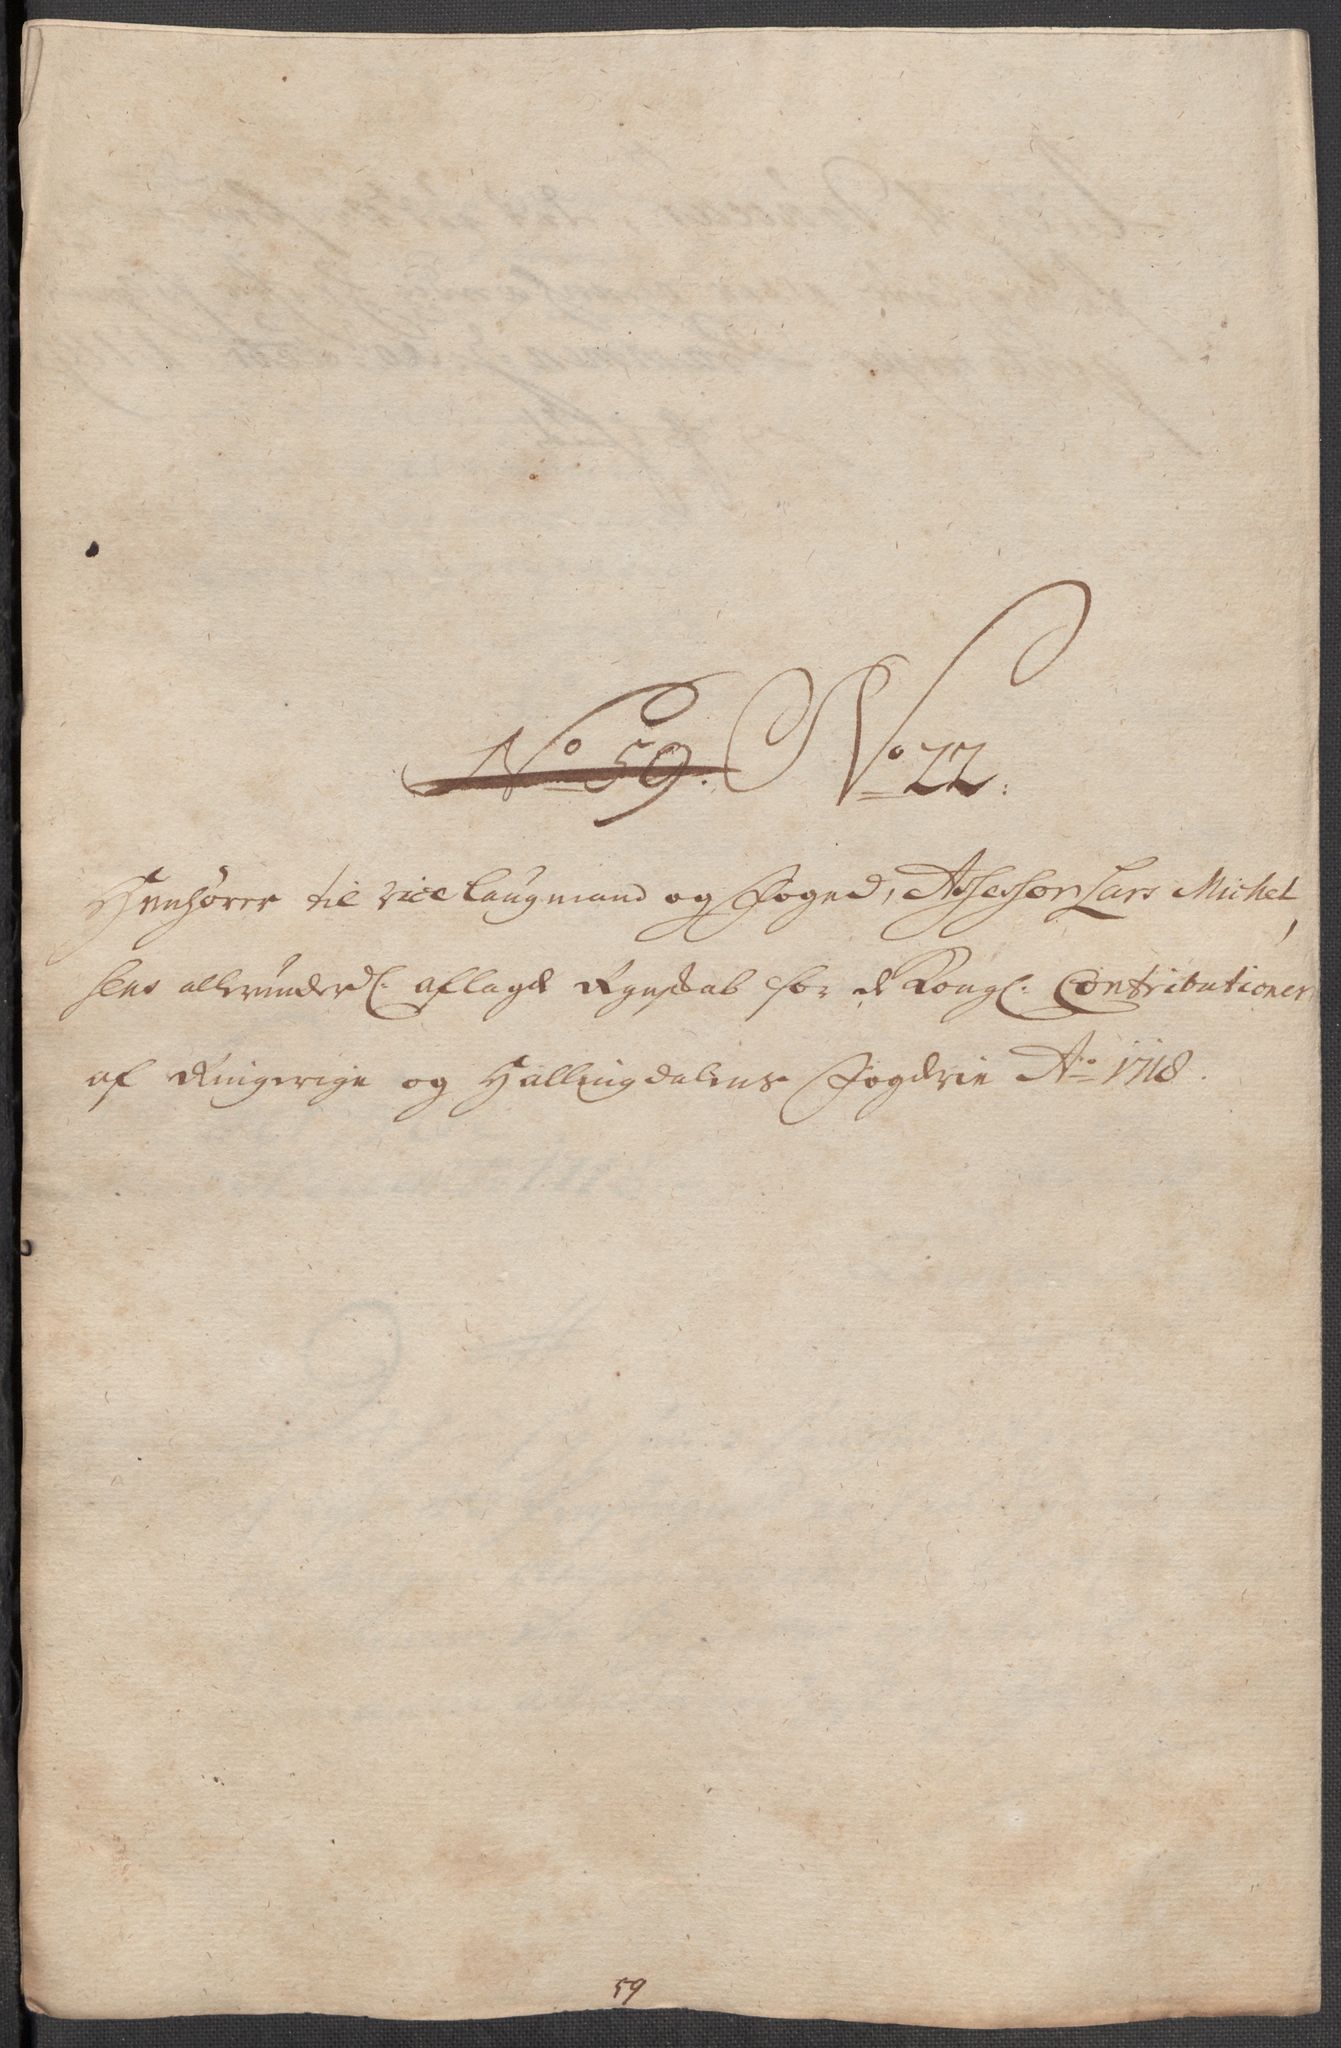 No 59. No 22:
Henhører til vice laugmand og Foged, Assessor Lars Michel,
sens allerunderd: aflagde Regnskab for de Kongl: Contributioner
af Ringerige og Hallingdalens Fogderie Ao 1718.
59